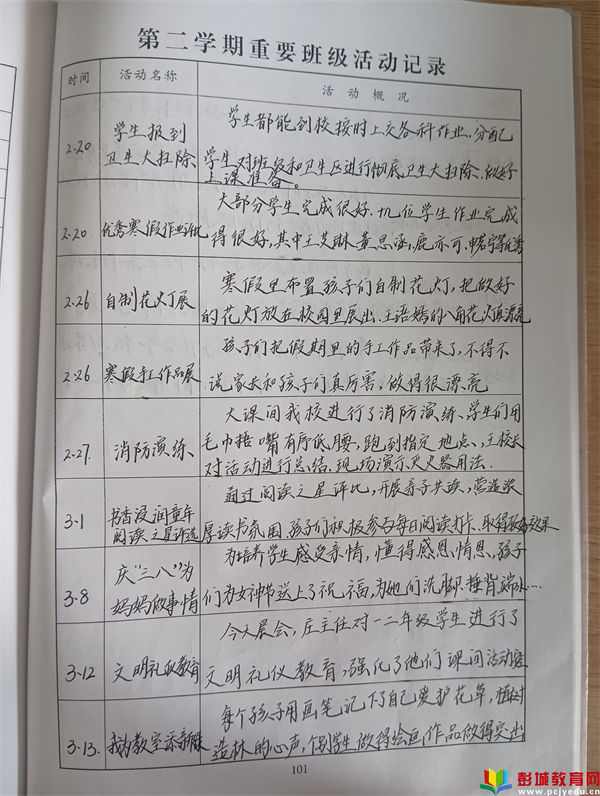 第二学期重要班级活动记录
时间 活动名称 活动概况
2.20 学生报到 卫生大扫除
学生都能到校按时上交各科作业，分配
学生对班级和卫生区进行彻底卫生大扫除.做好
上课准备。
2.20 优秀寒假作业评比
大部分学生完成很好.九位学生作业完成
得很好,其中王艾琳.董思涵,鹿亦可.申若宁等优秀
2.26 自制花灯展
寒假里布置孩子们自制花灯，把做好
的花灯放在校园里展出.王语嫣的八角花灯真漂亮
2.26 寒假手工作品展
孩子们把假期里的手工作品带来了,不得不
说家长和孩子们真厉害,做得很漂亮
2.27. 消防演练、
大课间我校进行了消防演练、学生们用
毛巾捂嘴有序低腰,跑到指定地点、王校长
对活动进行总结.现场演示灭火器用法.
3.1 书香浸润童年 阅读之星评选
通过阅读之星评比,开展亲子共读,营造浓
厚读书氛围孩子们积极参与每日阅读打卡.取得较好效果
3.8 庆"三八"为 妈妈做事情
为培养学生感受亲情,懂得感恩、情恩,孩子
们为女神节送上了祝福,为她们洗脚.捶背.端水……
3.12 文明礼仪教育
今天晨会,庄主任对一二年级学生进行了
文明礼仪教育,强化了他们课间活动
3.13. 我为教室添新绿
每个孩子用画笔记下了自己爱护花草,植树
造林的心声,个别学生做得绘画,作品做得突出
101
彭城教育网
www.pcjyedu.cn